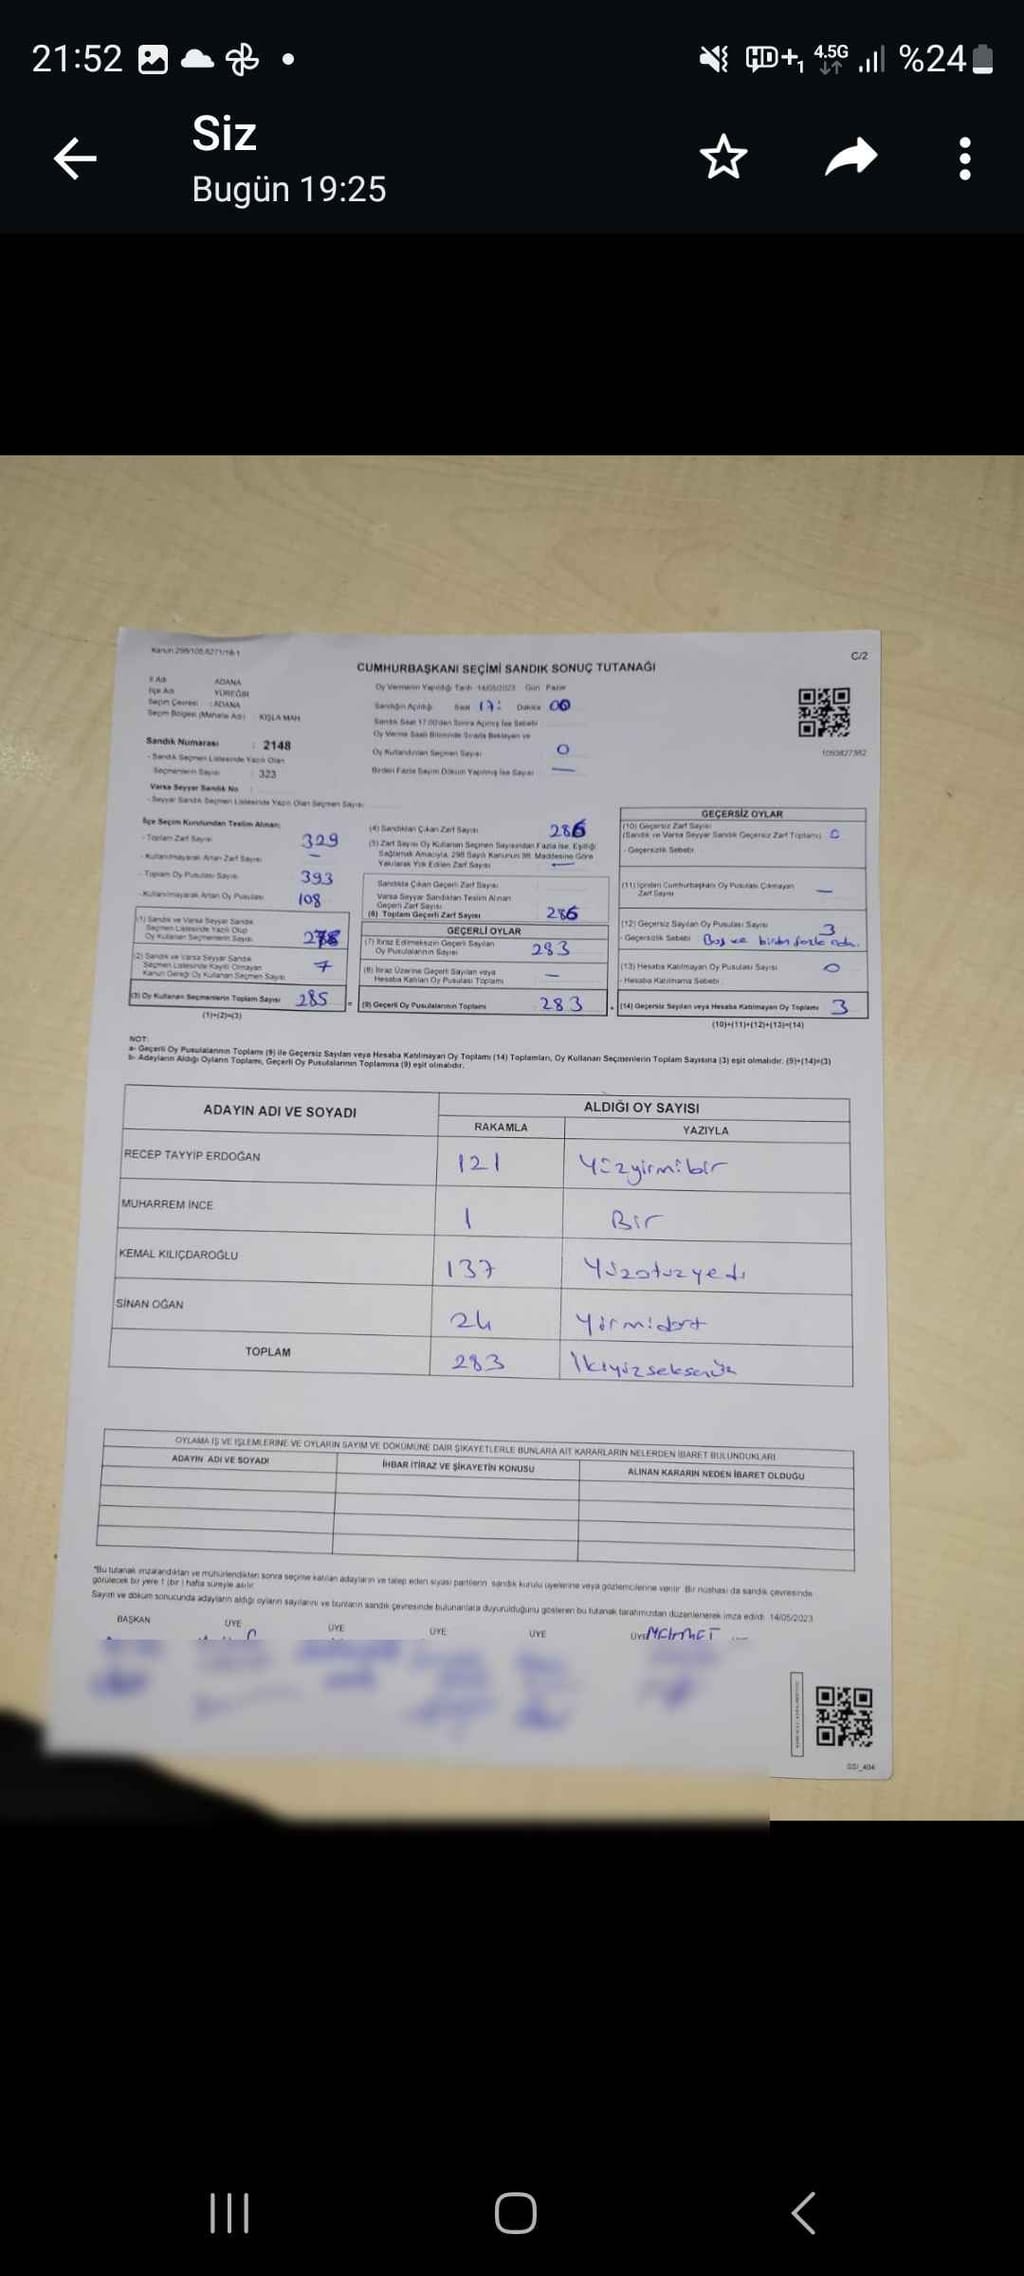 21:52
4.5G
%24
Siz
Bugün 19:25
Kanun 298/105,6271/18-1
C/2
CUMHURBAŞKANI SEÇİMİ SANDIK SONUÇ TUTANAĞI
İl Adı ADANA
İlçe Adı YÜREĞİR
Seçim Çevresi : ADANA
Seçim Bölgesi (Mahalle Adı) KIŞLA MAH
Sandık Numarası : 2148
- Sandık Seçmen Listesinde Yazılı Olan
Seçmenlerin Sayısı : 323
Varsa Seyyar Sandık No
- Seyyar Sandık Seçmen Listesinde Yazılı Olan Seçmen Sayısı
Oy Vermenin Yapıldığı Tarih 14/05/2023 Gün Pazar
Sandığın Açıldığı Saat 17: Dakika 00
Sandık Saat 17.00'den Sonra Açılmış İse Sebebi
Oy Verme Saati Bitiminde Sırada Bekleyen ve
Oy Kullandırılan Seçmen Sayısı 0
Birden Fazla Sayım Döküm Yapılmış İse Sayısı —
İlçe Seçim Kurulundan Teslim Alınan;
- Toplam Zarf Sayısı 329
- Kullanılmayarak Artan Zarf Sayısı —
- Toplam Oy Pusulası Sayısı 393
- Kullanılmayarak Artan Oy Pusulası 108
(1) Sandık ve Varsa Seyyar Sandık
Seçmen Listesinde Yazılı Olup
Oy Kullanan Seçmenlerin Sayısı 278
(2) Sandık ve Varsa Seyyar Sandık
Seçmen Listesinde Kayıtlı Olmayan
Kanun Gereği Oy Kullanan Seçmen Sayısı 7
(3) Oy Kullanan Seçmenlerin Toplam Sayısı 285
(1)+(2)=(3)
(4) Sandıktan Çıkan Zarf Sayısı 286
(5) Zarf Sayısı Oy Kullanan Seçmen Sayısından Fazla İse, Eşitliği
Sağlamak Amacıyla, 298 Sayılı Kanunun 98. Maddesine Göre
Yakılarak Yok Edilen Zarf Sayısı —
Sandıkta Çıkan Geçerli Zarf Sayısı
Varsa Seyyar Sandıktan Teslim Alınan
Geçerli Zarf Sayısı
(6) Toplam Geçerli Zarf Sayısı 286
GEÇERLİ OYLAR
(7) İtiraz Edilmeksizin Geçerli Sayılan
Oy Pusulalarının Sayısı 283
(8) İtiraz Üzerine Geçerli Sayılan veya
Hesaba Katılan Oy Pusulası Toplamı —
(9) Geçerli Oy Pusulalarının Toplamı 283
GEÇERSİZ OYLAR
(10) Geçersiz Zarf Sayısı
(Sandık ve Varsa Seyyar Sandık Geçersiz Zarf Toplamı) 0
- Geçersizlik Sebebi
(11) İçinden Cumhurbaşkanı Oy Pusulası Çıkmayan
Zarf Sayısı —
(12) Geçersiz Sayılan Oy Pusulası Sayısı 3
- Geçersizlik Sebebi Boş ve birden fazla
(13) Hesaba Katılmayan Oy Pusulası Sayısı 0
- Hesaba Katılmama Sebebi
(14) Geçersiz Sayılan veya Hesaba Katılmayan Oy Toplamı 3
(10)+(11)+(12)+(13)=(14)
NOT:
a- Geçerli Oy Pusulalarının Toplamı (9) ile Geçersiz Sayılan veya Hesaba Katılmayan Oy Toplamı (14) Toplamları, Oy Kullanan Seçmenlerin Toplam Sayısına (3) eşit olmalıdır. (9)+(14)=(3)
b- Adayların Aldığı Oyların Toplamı, Geçerli Oy Pusulalarının Toplamına (9) eşit olmalıdır.
ADAYIN ADI VE SOYADI
ALDIĞI OY SAYISI
RAKAMLA YAZIYLA
RECEP TAYYİP ERDOĞAN 121 Yüzyirmibir
MUHARREM İNCE 1 Bir
KEMAL KILIÇDAROĞLU 137 Yüzotuzyedi
SİNAN OĞAN 24 Yirmidört
TOPLAM 283 İkiyüzseksenüç
OYLAMA İŞ VE İŞLEMLERİNE VE OYLARIN SAYIM VE DÖKÜMÜNE DAİR ŞİKAYETLERLE BUNLARA AİT KARARLARIN NELERDEN İBARET BULUNDUKLARI
ADAYIN ADI VE SOYADI İHBAR İTİRAZ VE ŞİKAYETİN KONUSU ALINAN KARARIN NEDEN İBARET OLDUĞU
*Bu tutanak imzalandıktan ve mühürlendikten sonra seçime katılan adayların ve talep eden siyasi partilerin sandık kurulu üyelerine veya gözlemcilerine verilir. Bir nüshası da sandık çevresinde
görülecek bir yere 1 (bir ) hafta süreyle asılır.
Sayım ve döküm sonucunda adayların aldığı oyların sayılarını ve bunların sandık çevresinde bulunanlara duyurulduğunu gösteren bu tutanak tarafımızdan düzenlenerek imza edildi. 14/05/2023
BAŞKAN ÜYE ÜYE ÜYE ÜYE ÜYE MEHMET